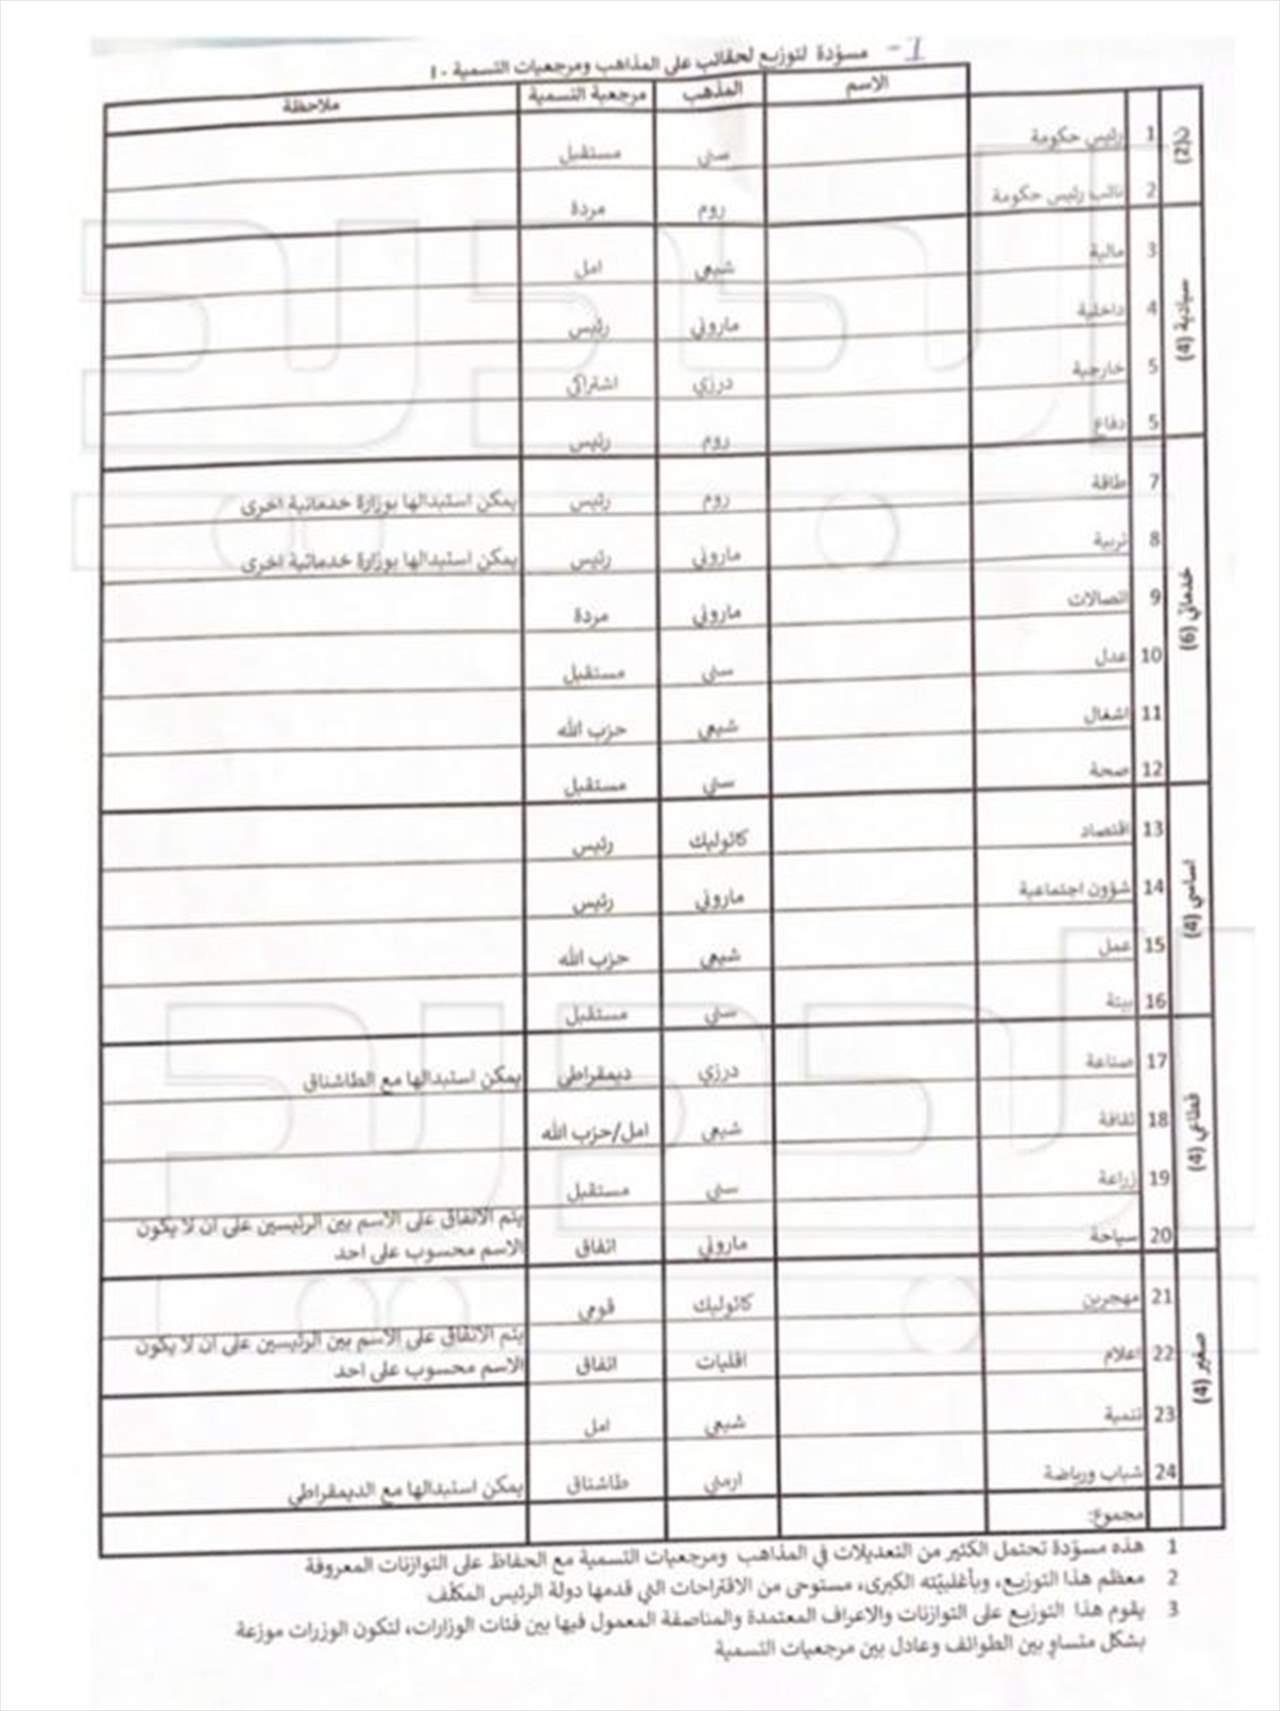 1-
مسوّدة لتوزيع لحقائب على المذاهب ومرجعيات التسمية - 1
الاسم المذهب مرجعية التسمية ملاحظة
(2)
1 رئيس حكومة سني مستقبل
2 نائب رئيس حكومة روم مردة
سيادية (4)
3 مالية شيعي امل
4 داخلية ماروني رئيس
5 خارجية درزي اشتراكي
5 دفاع روم رئيس
خدماتي (6)
7 طاقة روم رئيس يمكن استبدالها بوزارة خدماتية اخرى
8 تربية ماروني رئيس يمكن استبدالها بوزارة خدماتية اخرى
9 اتصالات ماروني مردة
10 عدل سني مستقبل
11 اشغال شيعي حزب الله
12 صحة سني مستقبل
اساسي (4)
13 اقتصاد كاثوليك رئيس
14 شؤون اجتماعية ماروني رئيس
15 عمل شيعي حزب الله
16 بيئة سني مستقبل
قطاعي (4)
17 صناعة درزي ديمقراطي يمكن استبدالها مع الطاشناق
18 ثقافة شيعي امل/حزب الله
19 زراعة سني مستقبل
20 سياحة ماروني اتفاق يتم الاتفاق على الاسم بين الرئيسين على ان لا يكون
الاسم محسوب على احد
صغير (4)
21 مهجرين كاثوليك قومي
22 اعلام اقليات اتفاق يتم الاتفاق على الاسم بين الرئيسين على ان لا يكون
الاسم محسوب على احد
23 تنمية شيعي امل
24 شباب ورياضة ارمني طاشناق يمكن استبدالها مع الديمقراطي
مجموع:
1 هذه مسوّدة تحتمل الكثير من التعديلات في المذاهب ومرجعيات التسمية مع الحفاظ على التوازنات المعروفة
2 معظم هذا التوزيع، وبأغلبيّته الكبرى، مستوحى من الاقتراحات التي قدمها دولة الرئيس المكلّف
3 يقوم هذا التوزيع على التوازنات والاعراف المعتمدة والمناصفة المعمول فيها بين فئات الوزارات، لتكون الوزرات موزعة
بشكل متساوٍ بين الطوائف وعادل بين مرجعيات التسمية